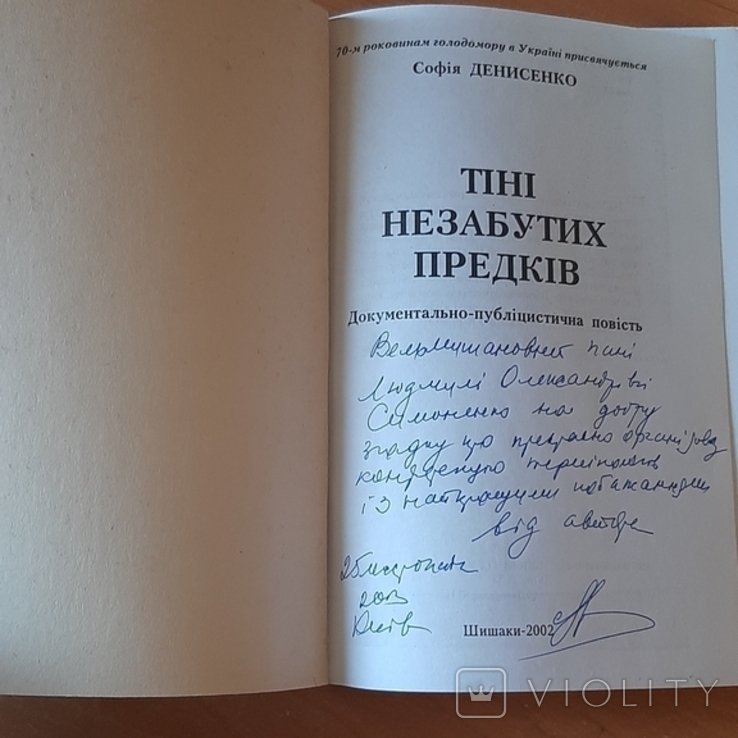 70-м роковинам голодомору в Україні присвячується
Софія ДЕНИСЕНКО
ТІНІ
НЕЗАБУТИХ
ПРЕДКІВ
Документально-публіцистична повість
Вельмишановній пані
Людмилі Олександрівні
Симоненко на добру
згадку про прекрасно
конференцію
і з найкращими побажаннями
від автора
25 листопада
2003
Київ
Шишаки-2002
VIOLITY